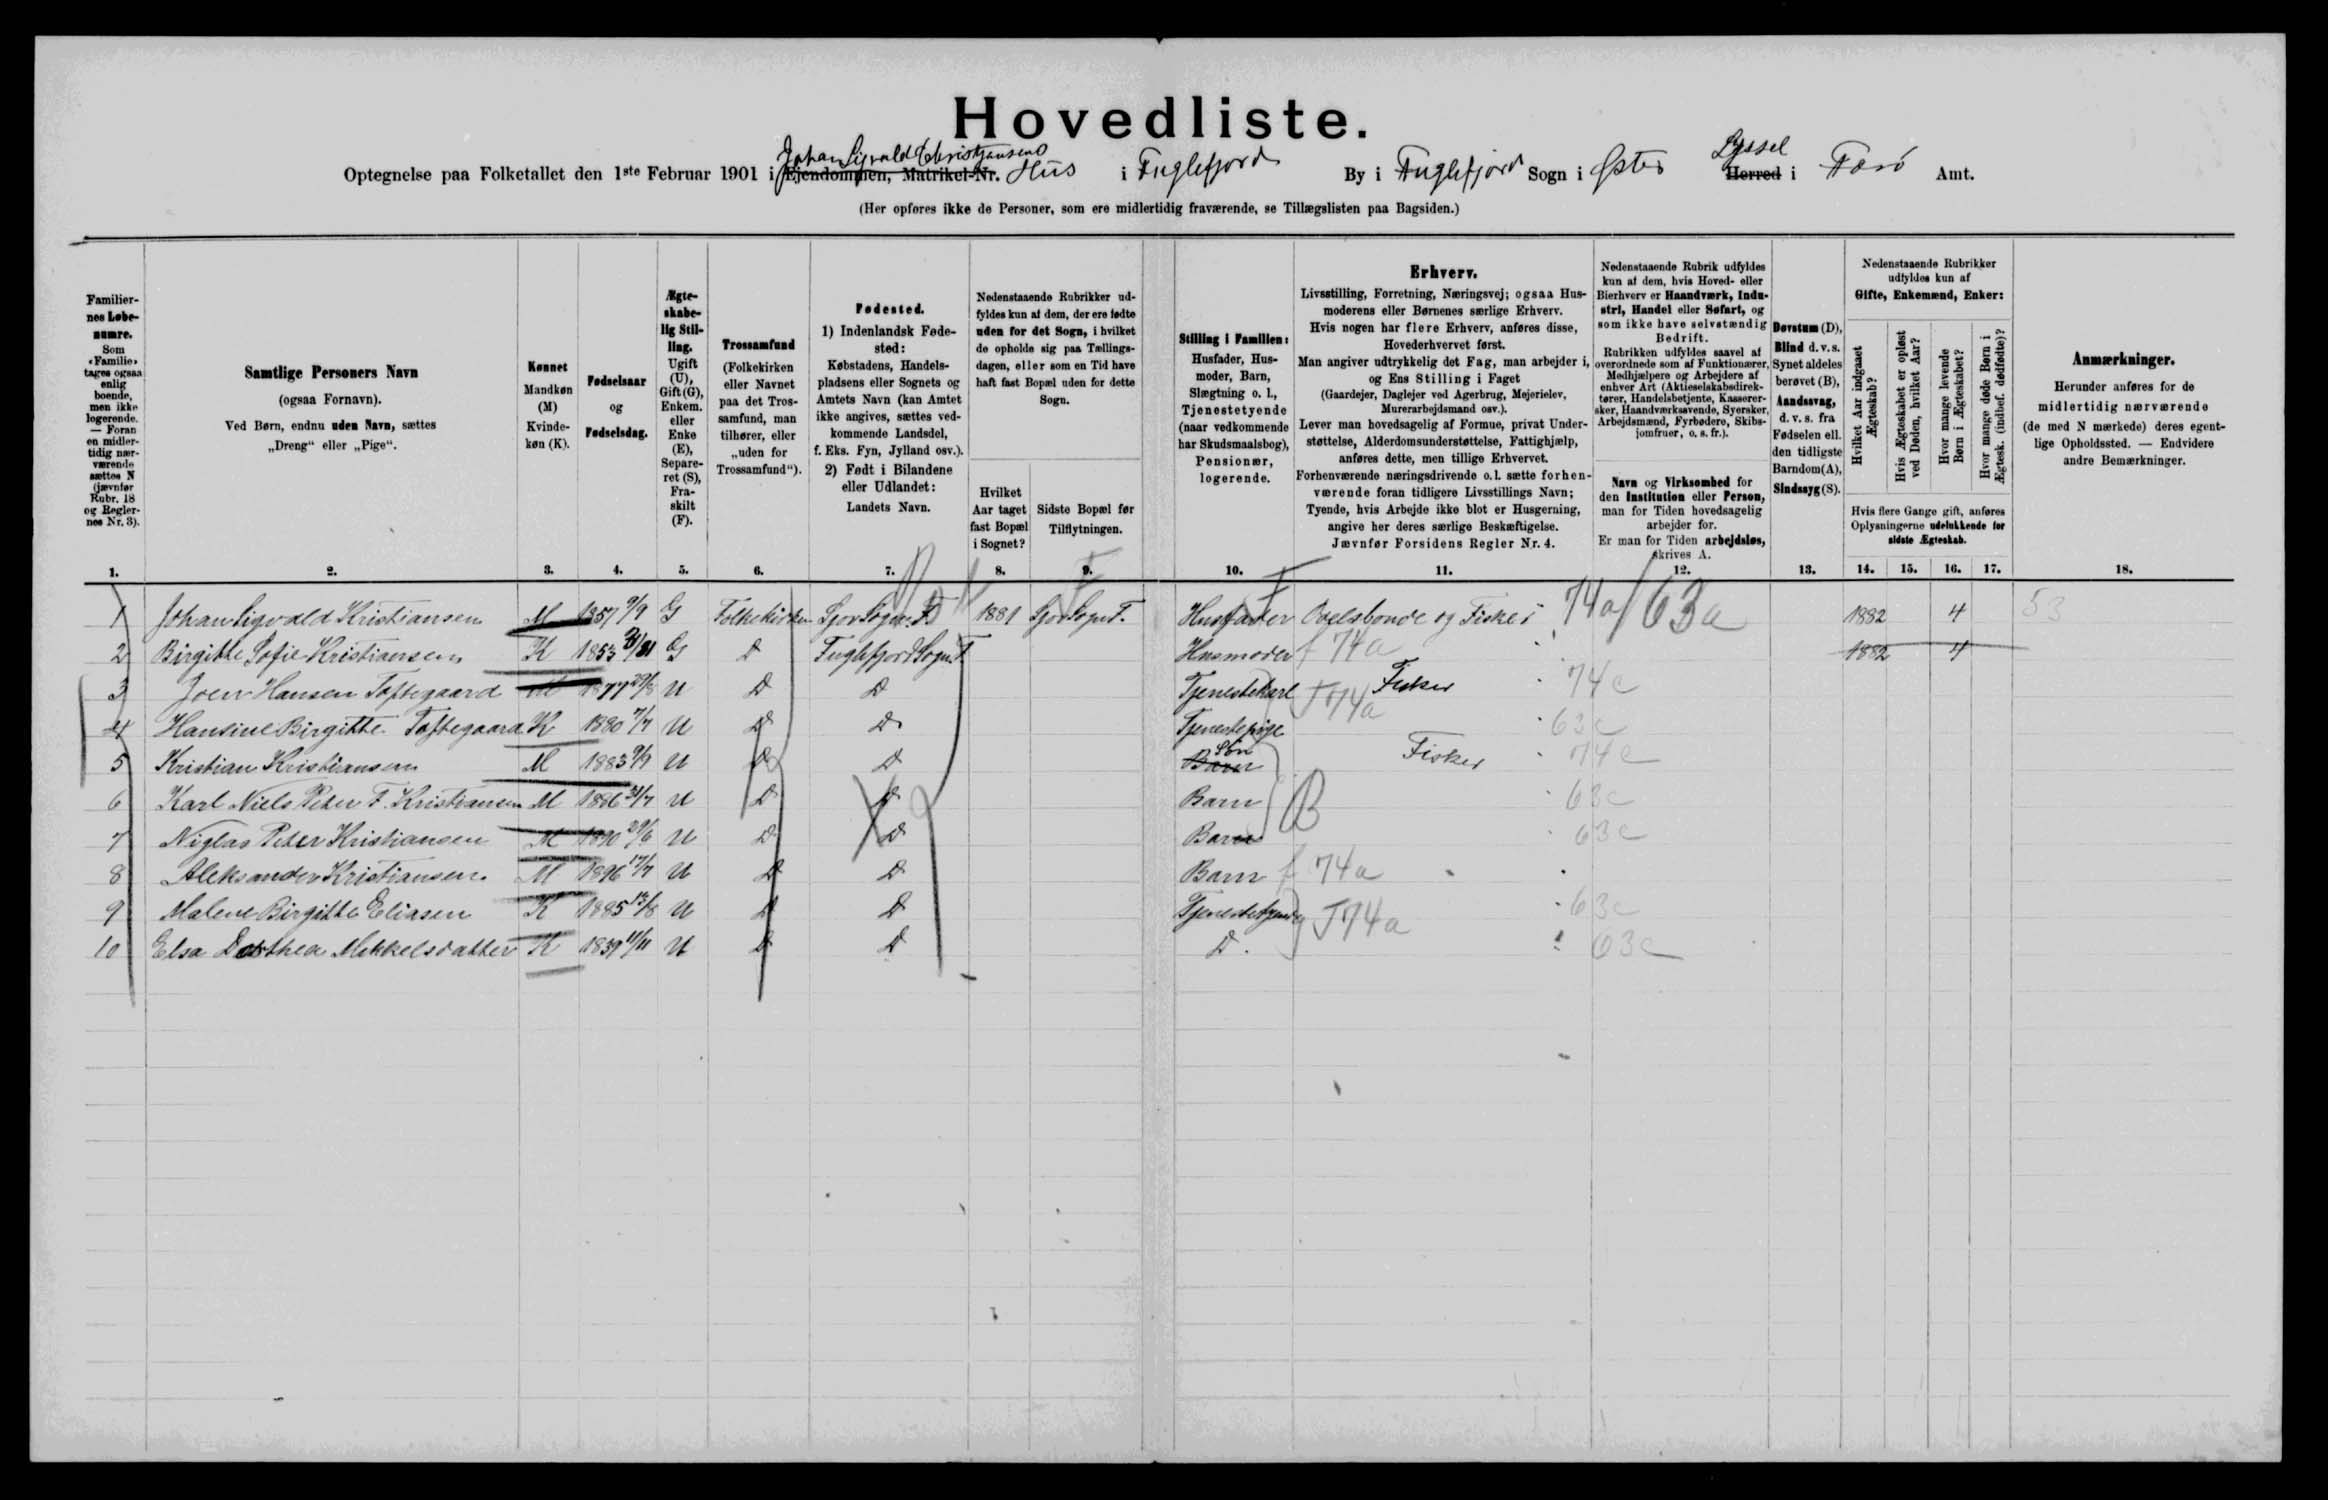 Hovedliste.
Optegnelse paa Folketallet den 1ste Februar 1901 i Ejendommen, Matrikel-Nr. Johan Sigvald Christjansens Hüs i Fuglefjord By i Fuglefjord Sogn i Østerø Herred Syssel i Færø Amt.
(Her opføres ikke de Personer, som ere midlertidig fraværende, se Tillægslisten paa Bagsiden.)
Familiernes Løbenumre. Som «Familie» tages ogsaa enlig boende, men ikke logerende. — Foran en midlertidig nærværende sættes N (jævnfør Rubr. 18 og Reglernes Nr. 3).
Samtlige Personers Navn (ogsaa Fornavn). Ved Børn, endnu uden Navn, sættes „Dreng“ eller „Pige“.
Kønnet Mandkøn (M) Kvindekøn (K).
Fødselsaar og Fødselsdag.
Ægteskabelig Stilling. Ugift (U), Gift (G), Enkem. eller Enke (E), Separeret (S), Fraskilt (F).
Trossamfund (Folkekirken eller Navnet paa det Trossamfund, man tilhører, eller „uden for Trossamfund“).
Fødested. 1) Indenlandsk Fødested: Købstadens, Handelspladsens eller Sognets og Amtets Navn (kan Amtet ikke angives, sættes vedkommende Landsdel, f. Eks. Fyn, Jylland osv.). 2) Født i Bilandene eller Udlandet: Landets Navn.
Nedenstaaende Rubrikker udfyldes kun af dem, der ere fødte uden for det Sogn, i hvilket de opholde sig paa Tællingsdagen, eller som en Tid have haft fast Bopæl uden for dette Sogn.
Hvilket Aar taget fast Bopæl i Sognet?
Sidste Bopæl før Tilflytningen.
Stilling i Familien: Husfader, Husmoder, Barn, Slægtning o. l., Tjenestetyende (naar vedkommende har Skudsmaalsbog), Pensionær, logerende.
Erhverv.
Livsstilling, Forretning, Næringsvej; ogsaa Husmoderens eller Børnenes særlige Erhverv.
Hvis nogen har flere Erhverv, anføres disse, Hovederhvervet først.
Man angiver udtrykkelig det Fag, man arbejder i, og Ens Stilling i Faget
(Gaardejer, Daglejer ved Agerbrug, Mejerielev, Murerarbejdsmand osv.).
Lever man hovedsagelig af Formue, privat Understøttelse, Alderdomsunderstøttelse, Fattighjælp, anføres dette, men tillige Erhvervet.
Forhenværende næringsdrivende o. l. sætte forhenværende foran tidligere Livsstillings Navn; Tyende, hvis Arbejde ikke blot er Husgerning, angive her deres særlige Beskæftigelse.
Jævnfør Forsidens Regler Nr. 4.
Nedenstaaende Rubrik udfyldes kun af dem, hvis Hoved- eller Bierhverv er Haandværk, Industri, Handel eller Søfart, og som ikke have selvstændig Bedrift.
Rubrikken udfyldes saavel af overordnede som af Funktionærer, Medhjælpere og Arbejdere af enhver Art (Aktieselskabsdirektører, Handelsbetjente, Kasserersker, Haandværksvende, Syersker, Arbejdsmænd, Fyrbødere, Skibsjomfruer, o. s. fr.).
Navn og Virksomhed for den Institution eller Person, man for Tiden hovedsagelig arbejder for.
Er man for Tiden arbejdsløs, skrives A.
Døvstum (D), Blind d. v. s. Synet aldeles berøvet (B), Aandssvag, d. v. s. fra Fødselen ell. den tidligste Barndom (A), Sindssyg (S).
Nedenstaaende Rubrikker udfyldes kun af Gifte, Enkemænd, Enker:
Hvilket Aar indgaaet Ægteskab?
Hvis Ægteskabet er opløst ved Døden, hvilket Aar?
Hvor mange levende Børn i Ægteskabet?
Hvor mange døde Børn i Ægtesk. (indbef. dødfødte)?
Hvis flere Gange gift, anføres Oplysningerne udelukkende for sidste Ægteskab.
Anmærkninger.
Herunder anføres for de midlertidig nærværende (de med N mærkede) deres egentlige Opholdssted. — Endvidere andre Bemærkninger.
1. 2. 3. 4. 5. 6. 7. 8. 9. 10. 11. 12. 13. 14. 15. 16. 17. 18.
1 Johan Sigvald Kristiansen M 1857 9/9 G Folkekirken Gjov Sogn. F 1881 Gjov Sogn F. Husfader Odelsbonde og Fisker 74a/63a 1882 4 53
2 Birgitte Sofie Kristiansen K 1853 G D Fuglefjord Sogn F Husmoder f 74a 1882 4
3 Joen Hansen Toftegaard M 1877 U D D Tjenestekarl T74a Fisker 74c
4 Hansine Birgitte Toftegaard K 1880 7/7 U D D Tjenestepige 63c
5 Kristian Kristiansen M 1883 9/9 U D D Barn Søn Fisker 74c
6 Karl Niels Peter F. Kristiansen M 1886 31/7 U D D Barn B 63c
7 Niglas Peter Kristiansen M 1890 29/6 U D D Barn 63c
8 Aleksander Kristiansen. M 1896 17/7 U D D Barn f 74a
9 Malene Birgitte Eliasen K 1885 13/8 U D D Tjenestetyende T74a 63c
10 Elsa Dorthea Mikkelsdatter K 1839 11/11 U D D D. 63c